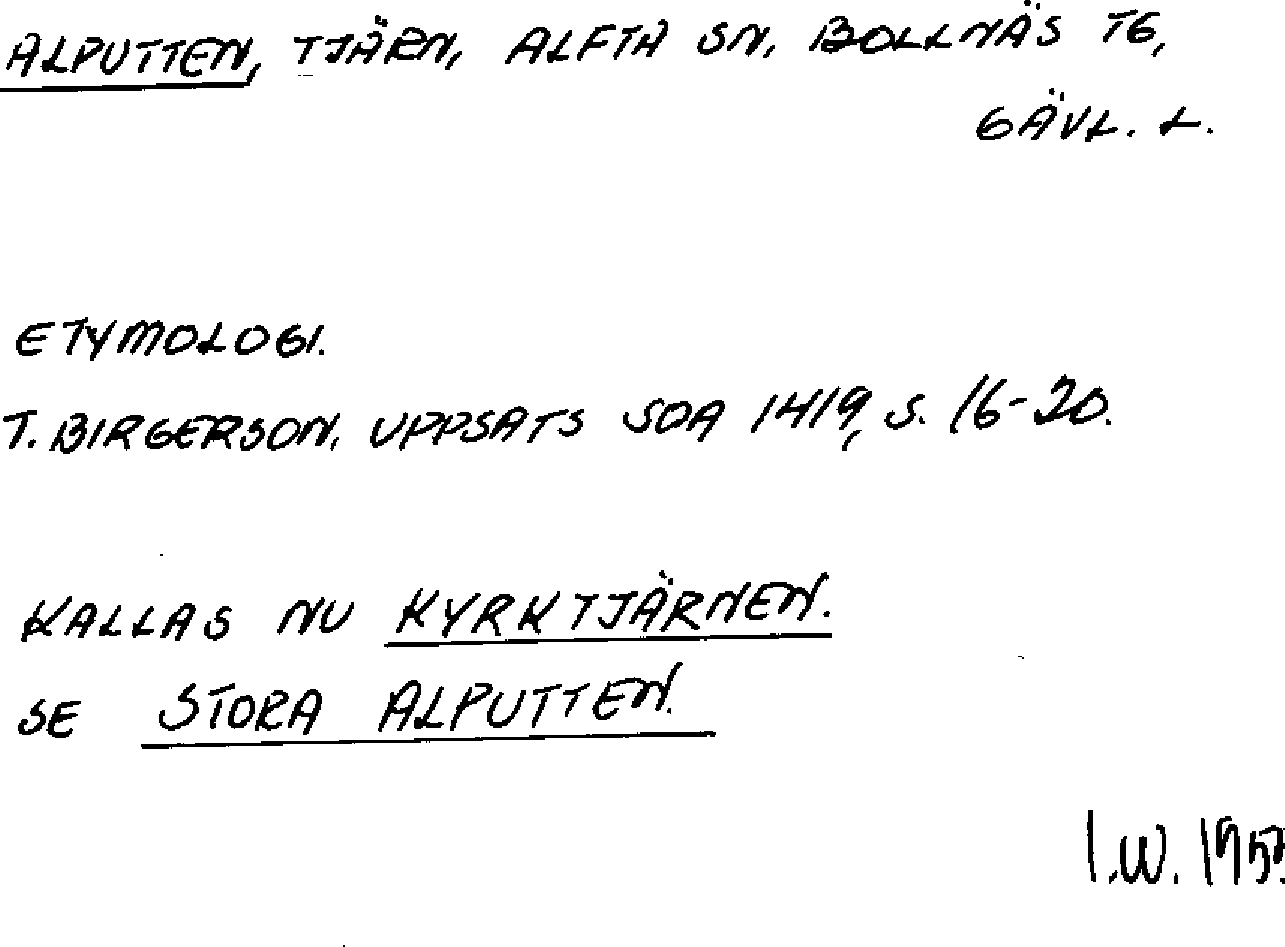 ALPUTTEN, TJÄRN, ALFTA SN, BOLLNÄS TG,
GÄVL. L.
ETYMOLOGI.
T. BIRGERSON, UPPSATS SOA 1419, S. 16-20.
KALLAS NU KYRKTJÄRNEN.
SE STORA ALPUTTEN.
I.W. 1957.